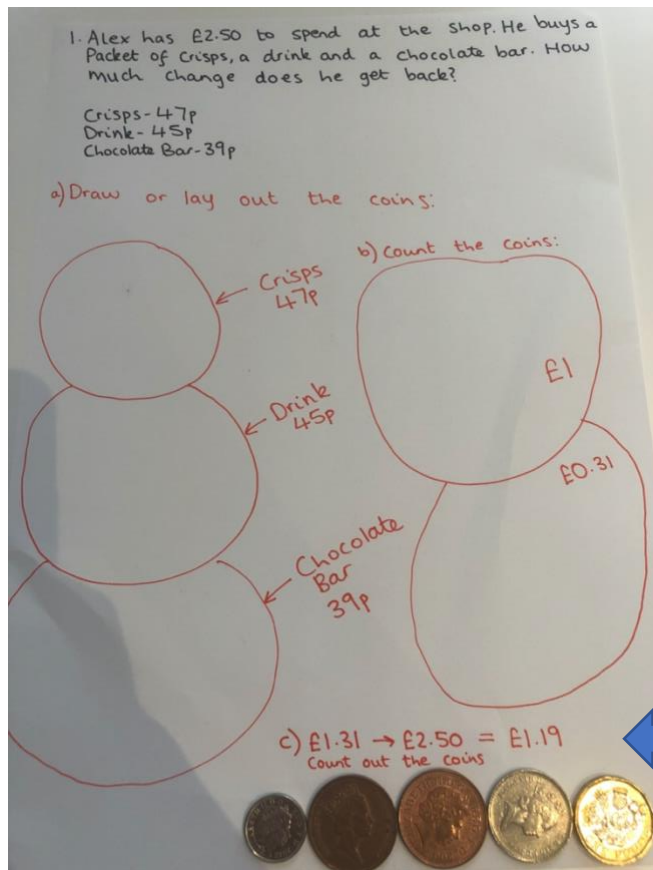 1. Alex has £2.50 to spend at the shop. He buys a
Packet of Crisps, a drink and a chocolate bar. How
much change does he get back?
Crisps - 47p
Drink - 45p
Chocolate Bar - 39p
a) Draw or lay out the coins:
Crisps
47p
Drink
45p
Chocolate
Bar
39p
b) Count the coins:
£1
£0.31
c) £1.31 → £2.50 = £1.19
Count out the coins